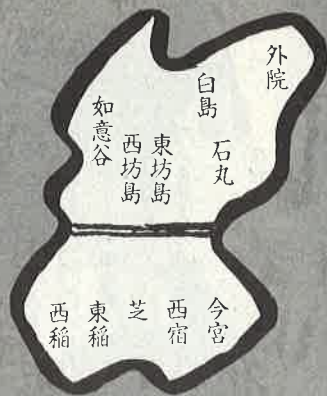 外院
臼島
石丸
東坊島
西坊島
如意谷
今宮
西宿
芝
東稲
西稲